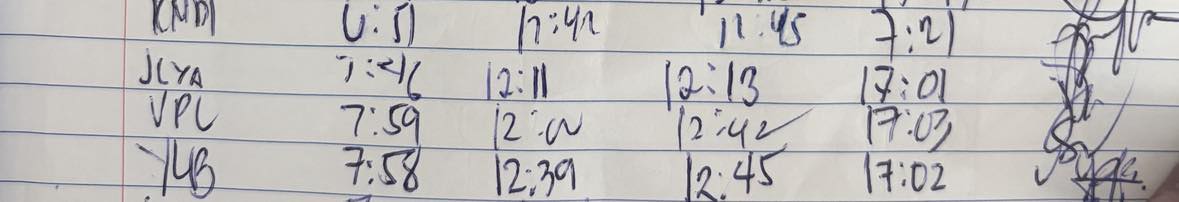 6:51 12:42 12:45 7:21
JCYA 7:46 12:11 12:13 17:01
VPL 7:59 12:42 17:03
YLB 7:58 12:39 12:45 17:02